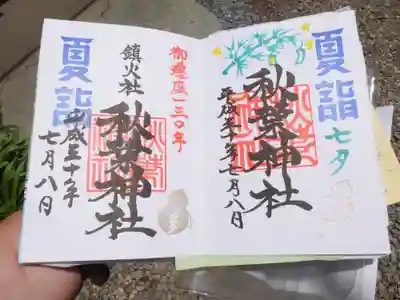 夏詣
七夕
秋葉神社
平成三十年七月八日
御遷座一三〇年
鎮火社
秋葉神社
夏詣
平成三十年
七月八日